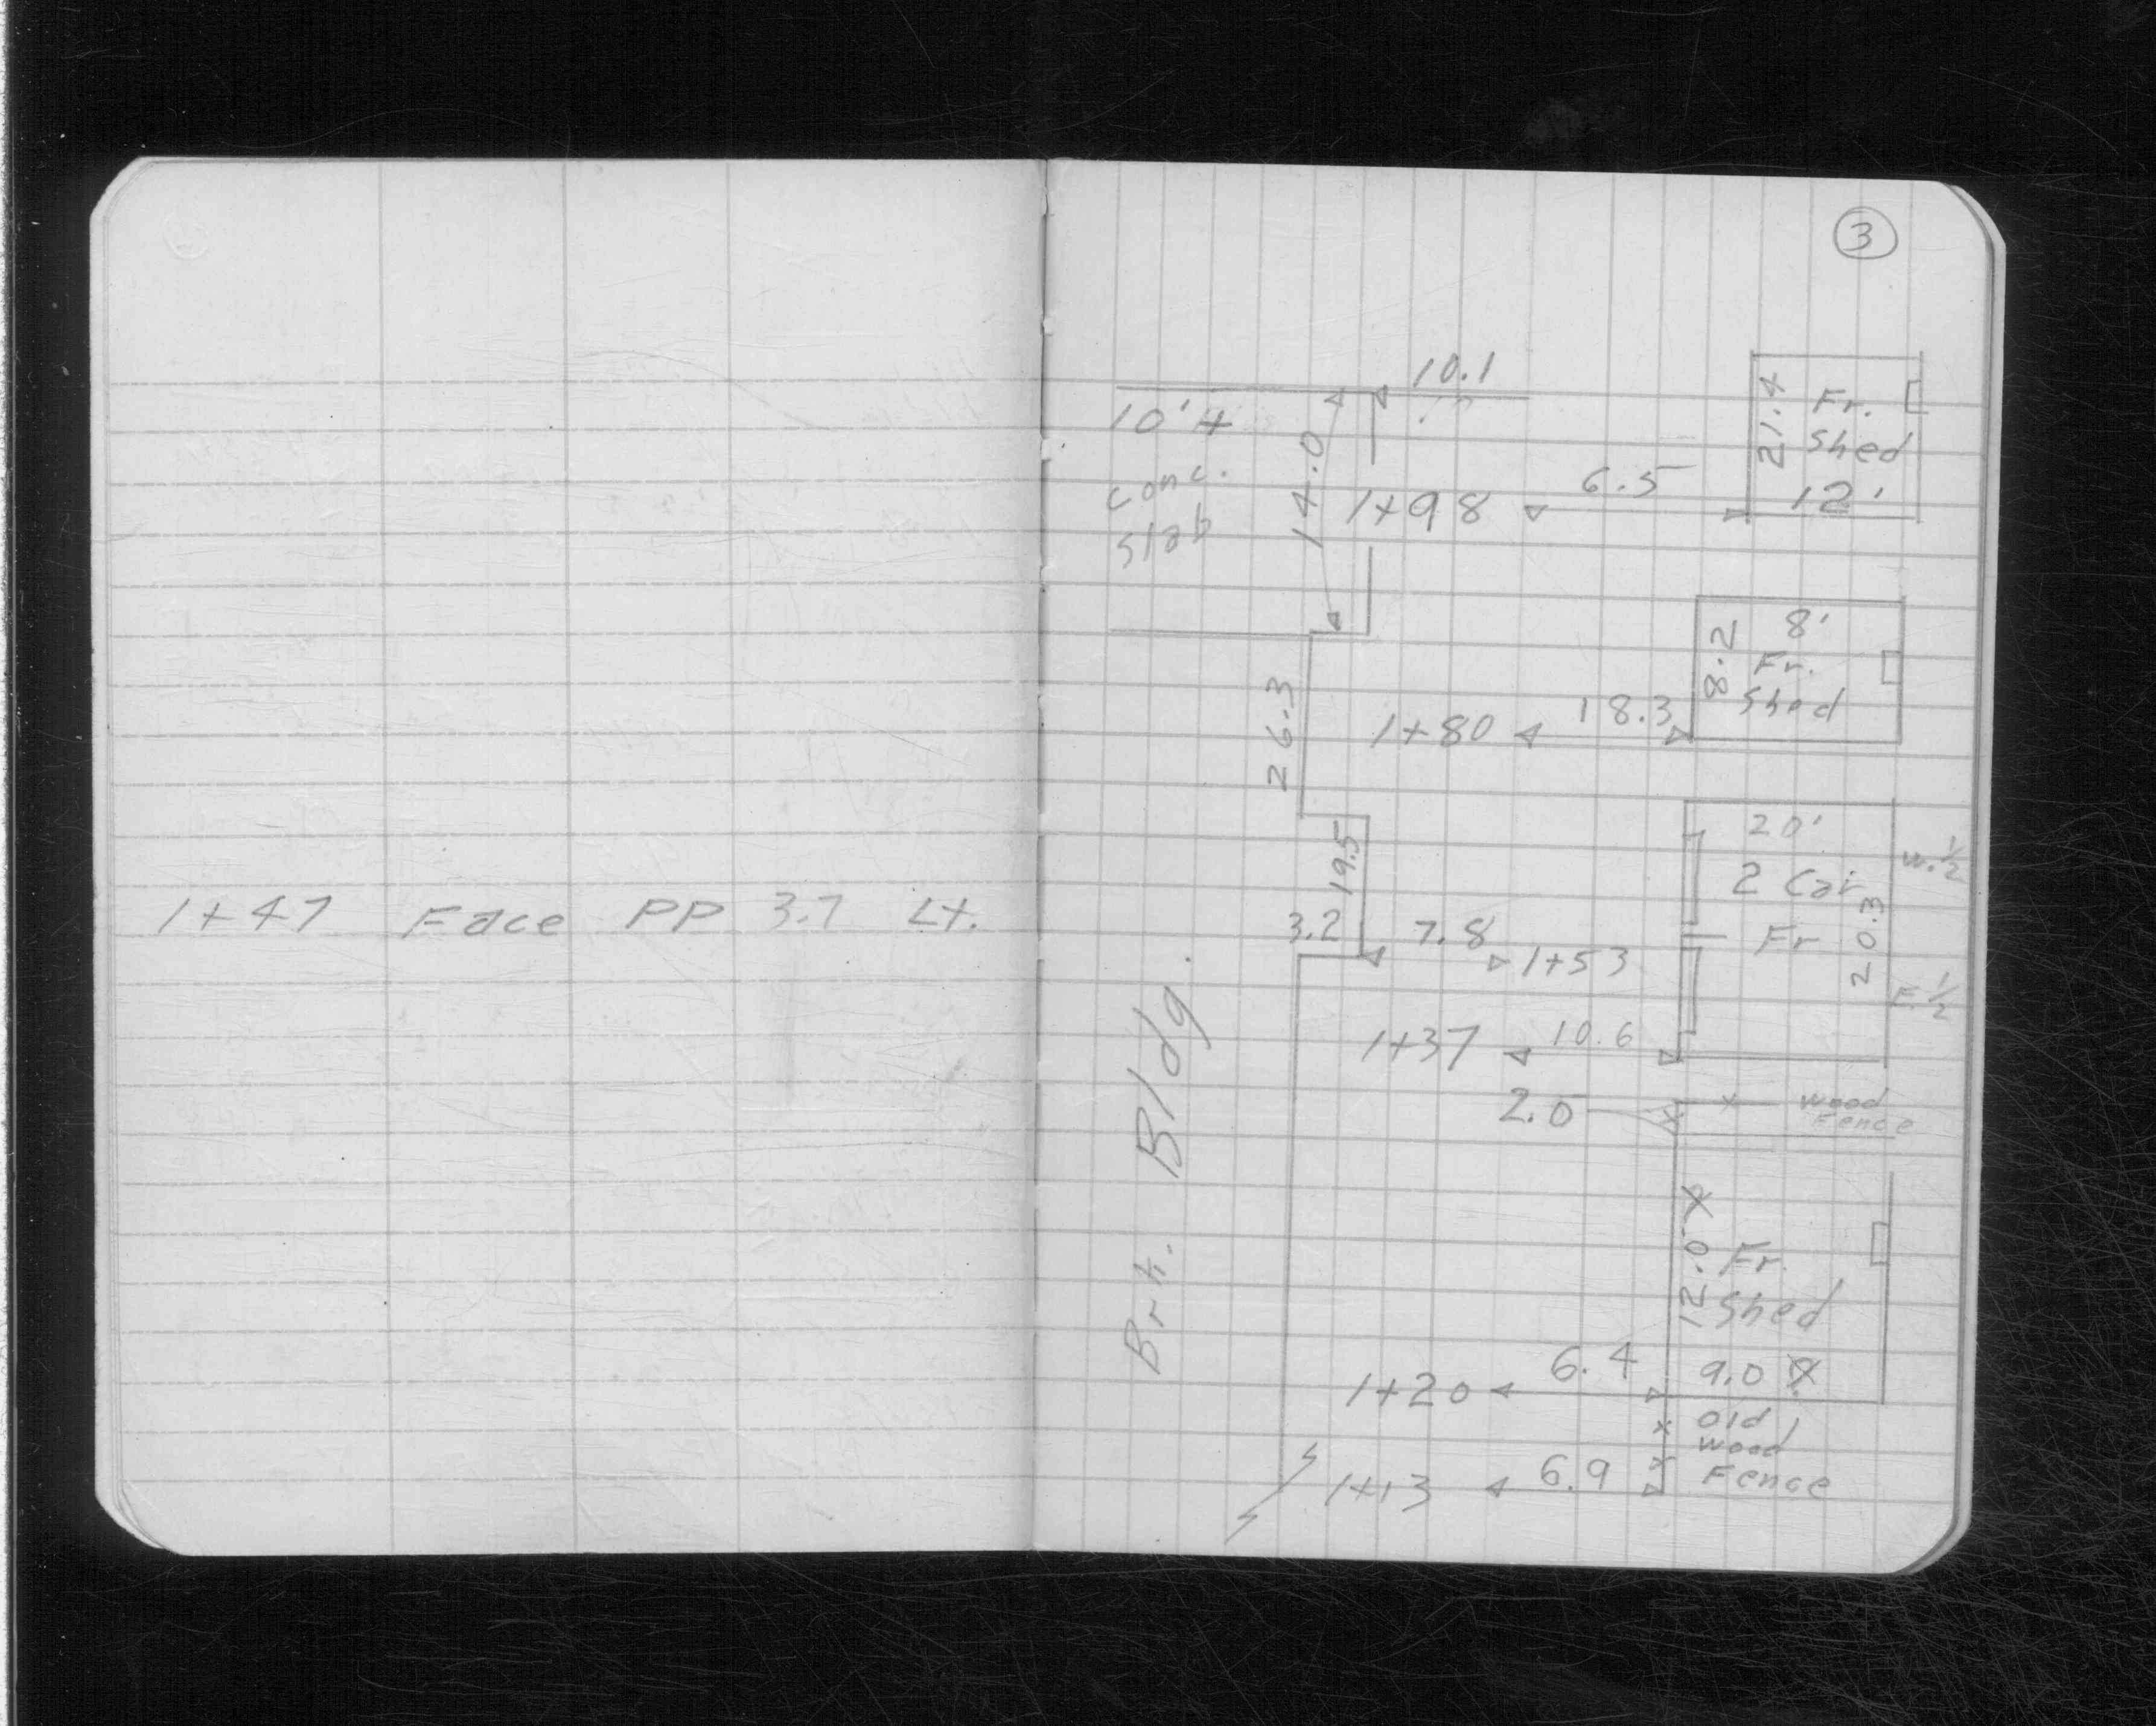 1+47 Face PP 3.7 Lt.
3
10.1
10'±
conc.
slab
14.0
1+98
6.5
21.4
Fr.
Shed
12'
26.3
1+80
18.3
8.2
8'
Fr.
Shed
19.5
3.2
7.8
1+53
20'
2 Car
Fr
20.3
W. 1/2
E. 1/2
1+37
10.6
2.0
wood
Fence
Brk. Bldg.
12.0
Fr.
Shed
1+20
6.4
9.0
old
wood
Fence
1+13
6.9